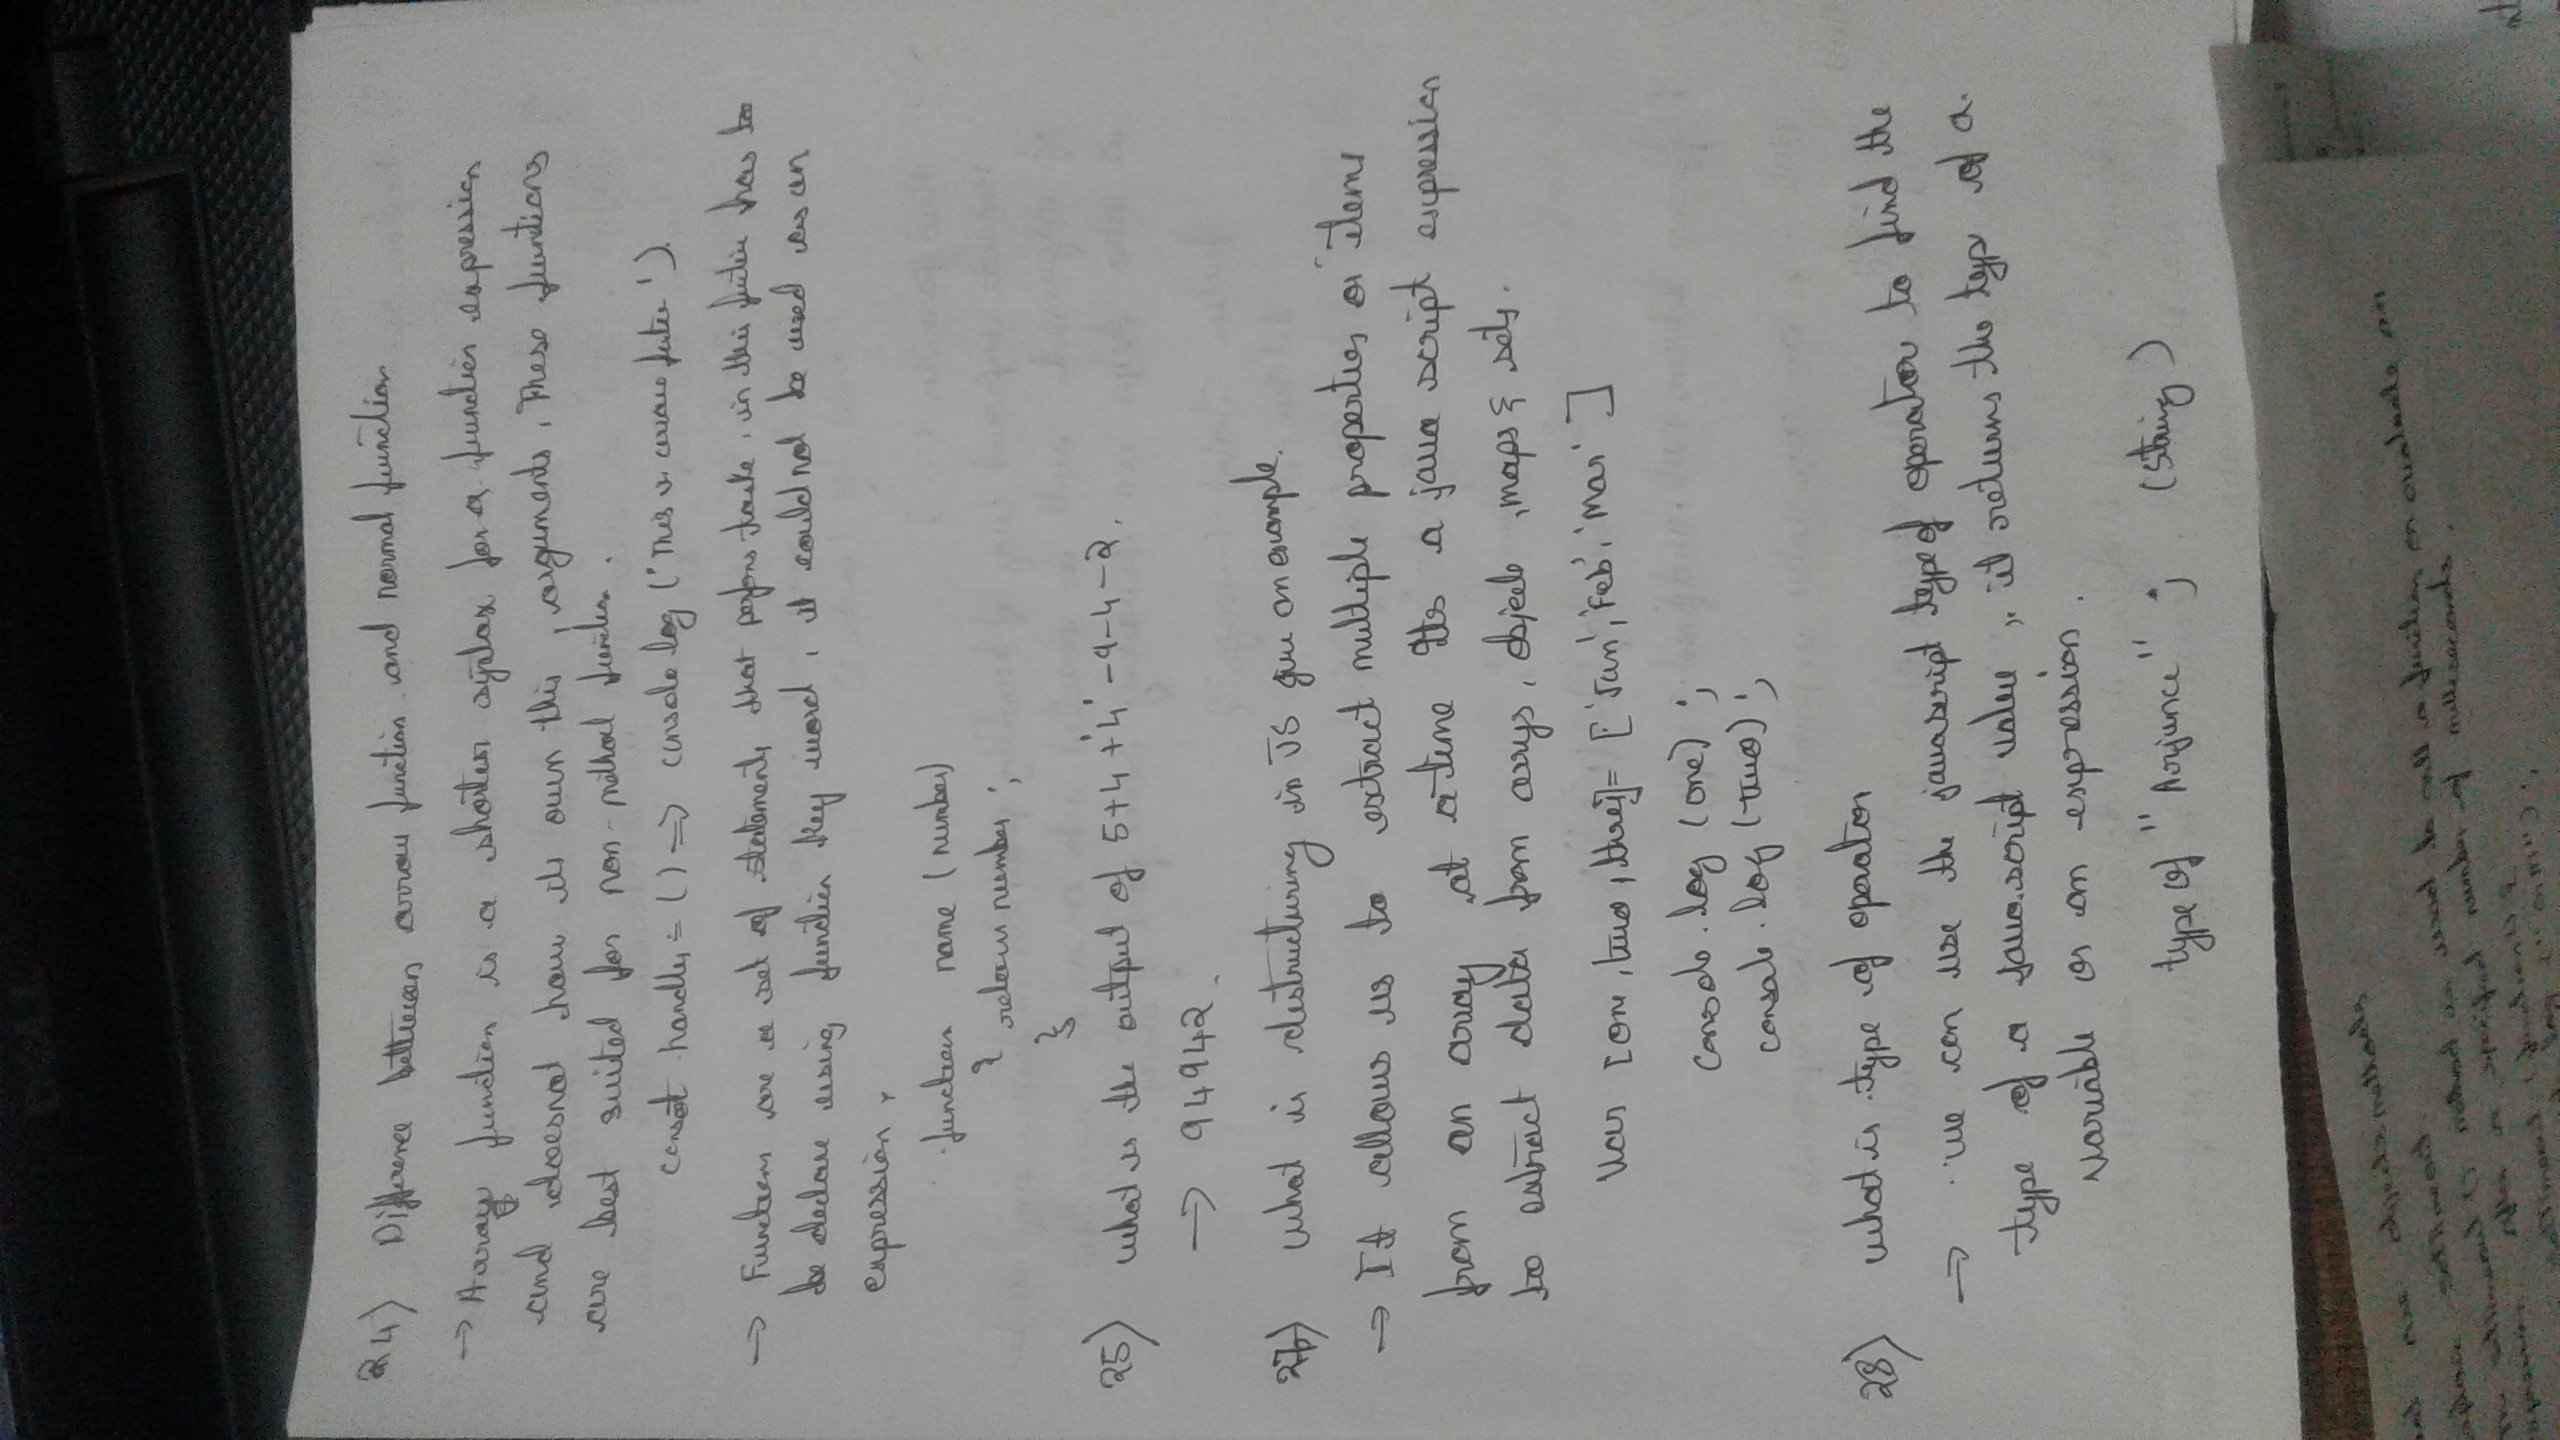 DELL
24) Difference between arrow function and normal function
→ Aaray function is a shorter syntax for a function expression
and doesnot have its own this, arguments, These functions
are best suited for non-method function.
const handler = () => console log ('This is arrow
→ Functions are a set of statements that perfoms taske, in this has to
be declare using function key word, it could not be used as an
expression,
function name (number)
{ return number ;
}
25) what is the output of 5+4+'4'-9-4-2.
→ 94942.
27) what is destructuring in JS give an example.
→ It allows us to extract multiple properties or items
from an array at a time Its a java script expression
to extract data from arrys, objects, maps & sets.
Var [one, two, three] = ['Jan', 'Feb', 'Mar']
console.log (one) ;
console.log (two) ;
28) what is type of operator
→ we can use the javascript type of operator to find the
type of a java.script value, it returns the type of a
variable or an expression.
type of " " ; (String)